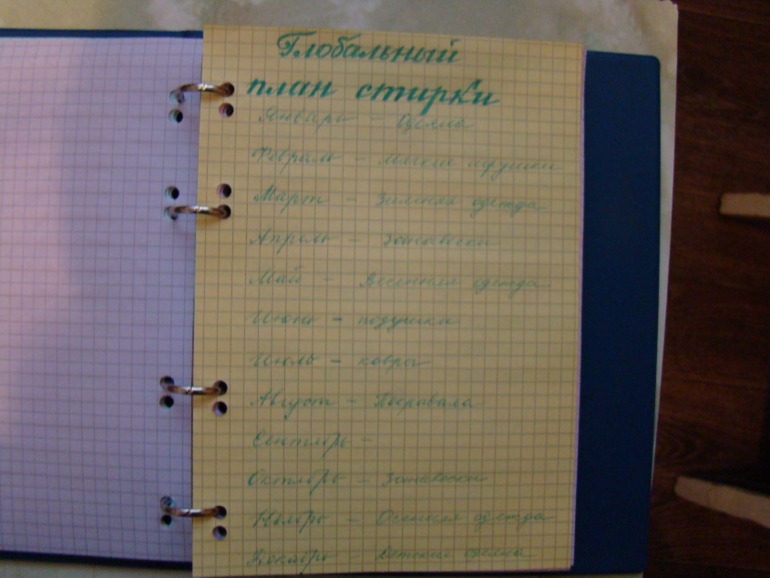 Глобальный
план стирки
Январь - Одеяла
Февраль - мягкие игрушки
Март - Зимняя одежда
Апрель - Занавески
Май - Весенняя одежда
Июнь - подушки
Июль - ковры
Август - Покрывала
Сентябрь -
Октябрь - Занавески
Ноябрь - Осенняя одежда
Декабрь - Детские одеяла